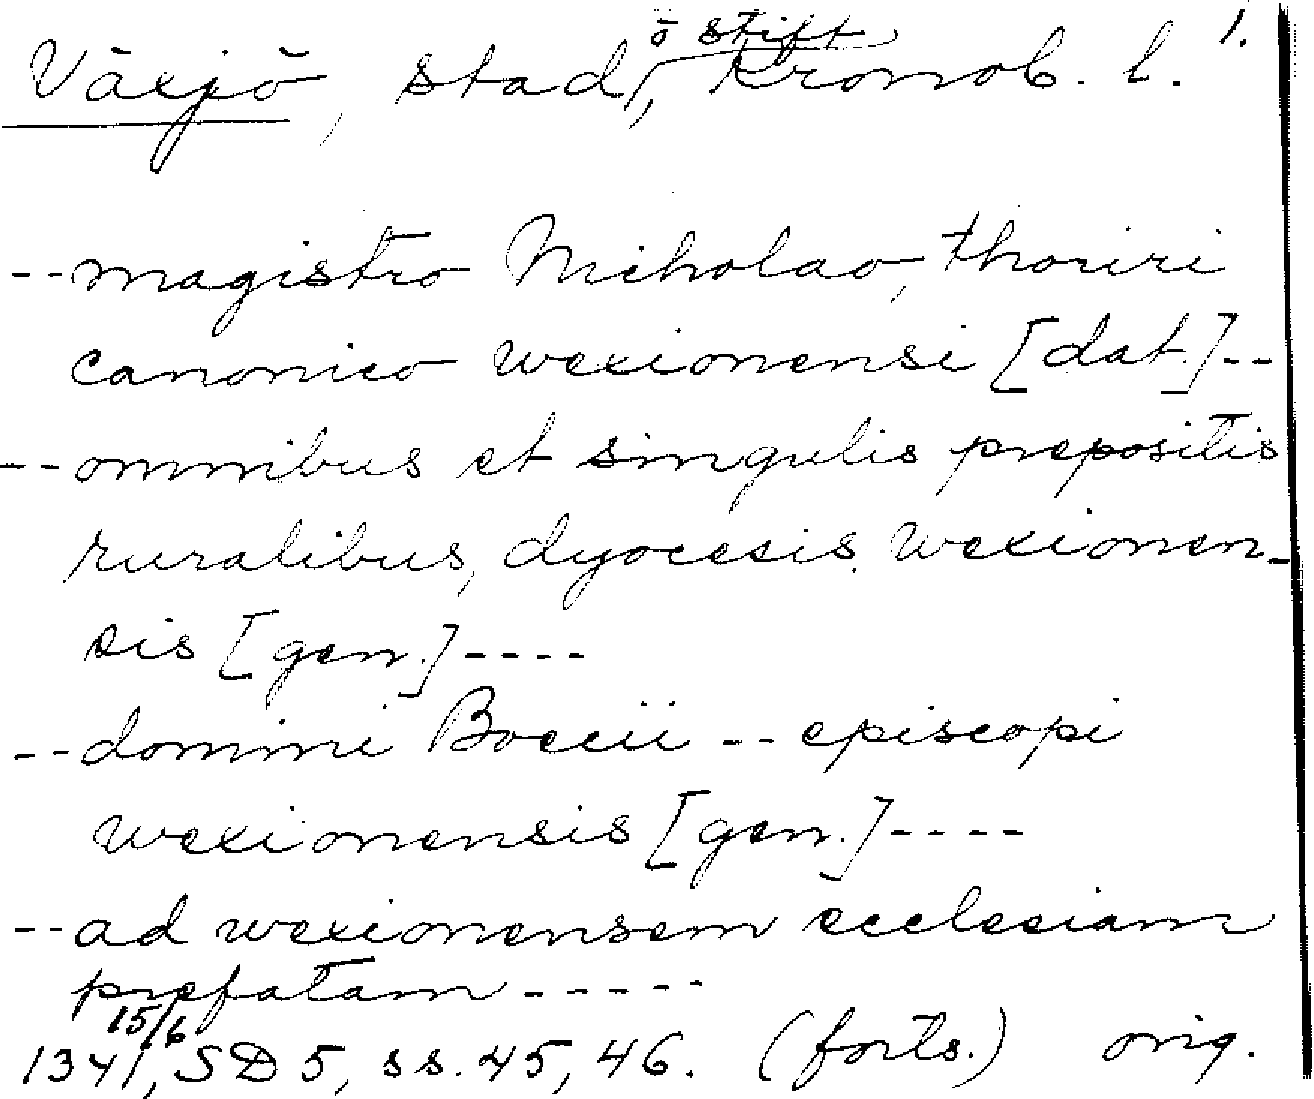 Växjö, stad, Kronob. l. 1.
o stift
--magistro Nicholao, thoriri
canonico wexionensi [dat.]--
--omnibus et singulis prepositis
ruralibus, dyocesis wexionen-
sis [gen.]----
--domini Boecii -- episcopi
wexionensis [gen.]----
--ad wexionensem ecclesiam
prefatam-----
15/6
1341, SD 5, ss. 45, 46. (forts.) orig.